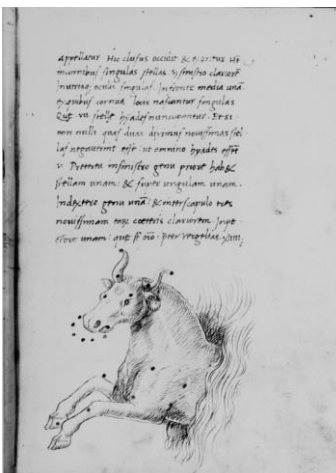 appellatur. Hic clusus occidit & exoritur. Ht
incornibus singulas stellas. Sinistro clariorē
Inutriusq; oculis singulas. Infronte media unā.
Exquibus cornua locis nascuntur singulas
Que .vii. stellę hyades nuncupantur. Etsi
non nulli quas duas diximus novissimas stel
las negaverint esse. ut omnino hyades essēt
.v. Preterea insinistro genu priore habet
stellam unam. & super ungulam unam.
Indextro genu unā. & interscapulo tres
novissimam earum cęteris clariorem. Inpe
ctore unam. que st̄ oīo. preter vergilias. xviii.